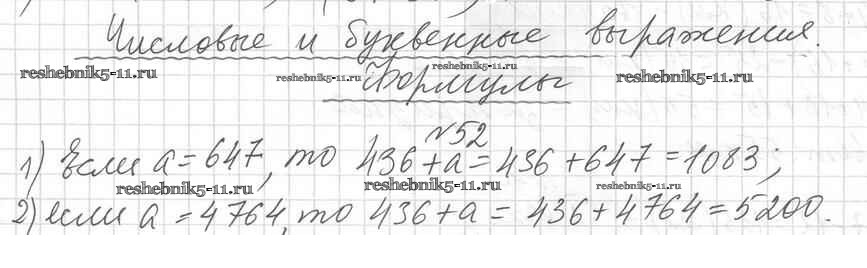 Числовые и буквенные выражения.
reshebnik5-11.ru reshebnik5-11.ru reshebnik5-11.ru reshebnik5-11.ru
Формулы
№52
1) Если a = 647, то 436 + a = 436 + 647 = 1083;
reshebnik5-11.ru reshebnik5-11.ru reshebnik5-11.ru
2) если a = 4764, то 436 + a = 436 + 4764 = 5200.